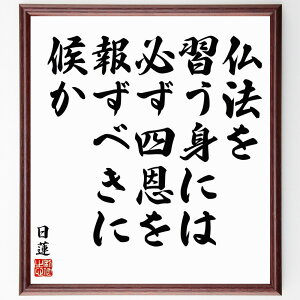 仏法を
習う身には
必ず四恩を
報ずべきに
候か
日蓮